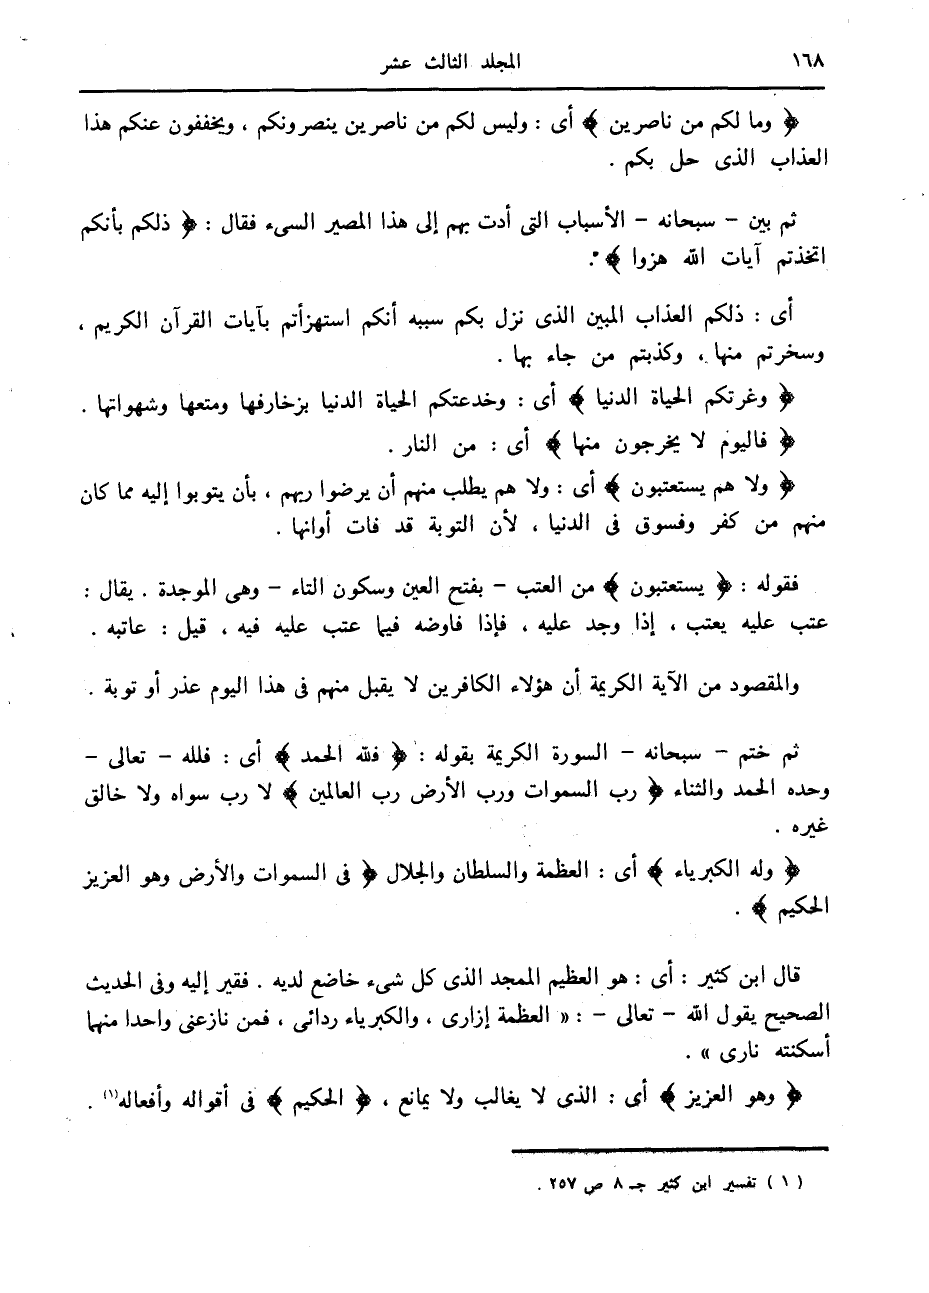 ١٦٨ المجلد الثالث عشر
﴿ وما لكم من ناصرين ﴾ أى : وليس لكم من ناصرين ينصرونكم ، ويخففون عنكم هذا
العذاب الذى حل بكم .
ثم بين – سبحانه – الأسباب التى أدت بهم إلى هذا المصير السىء فقال : ﴿ ذلكم بأنكم
اتخذتم آيات الله هزوا ﴾ .
أى : ذلكم العذاب المبين الذى نزل بكم سببه أنكم استهزأتم بآيات القرآن الكريم ،
وسخرتم منها ، وكذبتم من جاء بها .
﴿ وغرتكم الحياة الدنيا ﴾ أى : وخدعتكم الحياة الدنيا بزخارفها ومتعها وشهواتها .
﴿ فاليوم لا يخرجون منها ﴾ أى : من النار .
﴿ ولا هم يستعتبون ﴾ أى : ولا هم يطلب منهم أن يرضوا ربهم ، بأن يتوبوا إليه مما كان
منهم من كفر وفسوق فى الدنيا ، لأن التوبة قد فات أوانها .
فقوله : ﴿ يستعتبون ﴾ من العتب – بفتح العين وسكون التاء – وهى الموجدة . يقال :
عتب عليه يعتب ، إذا وجد عليه ، فإذا فاوضه فيما عتب عليه فيه ، قيل : عاتبه .
والمقصود من الآية الكريمة أن هؤلاء الكافرين لا يقبل منهم فى هذا اليوم عذر أو توبة .
ثم ختم – سبحانه – السورة الكريمة بقوله : ﴿ فلله الحمد ﴾ أى : فلله – تعالى –
وحده الحمد والثناء ﴿ رب السموات ورب الأرض رب العالمين ﴾ لا رب سواه ولا خالق
غيره .
﴿ وله الكبرياء ﴾ أى : العظمة والسلطان والجلال ﴿ فى السموات والأرض وهو العزيز
الحكيم ﴾ .
قال ابن كثير : أى : هو العظيم الممجد الذى كل شىء خاضع لديه . فقير إليه وفى الحديث
الصحيح يقول الله – تعالى – : « العظمة إزارى ، والكبرياء ردائى ، فمن نازعنى واحدا منهما
أسكنته نارى » .
﴿ وهو العزيز ﴾ أى : الذى لا يغالب ولا يمانع ، ﴿ الحكيم ﴾ فى أقواله وأفعاله(١) .
( ١ ) تفسير ابن كثير جـ ٨ ص ٢٥٧ .